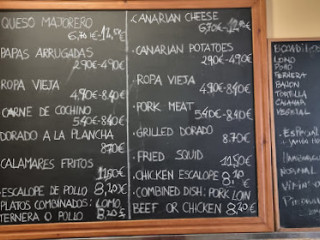 QUESO MAJORERO
6,70€-12,90€
PAPAS ARRUGADAS
2,90€-4,90€
ROPA VIEJA
4,90€-8,40€
CARNE DE COCHINO
5,40€-8,40€
DORADO A LA PLANCHA
8,70€
CALAMARES FRITOS
11,50€
ESCALOPE DE POLLO 8,20€
PLATOS COMBINADOS: LOMO,
TERNERA O POLLO 8,20€
CANARIAN CHEESE
6,70€-12,90€
CANARIAN POTATOES
2,90€-4,90€
ROPA VIEJA
4,90€-8,40€
PORK MEAT
5,40€-8,40€
GRILLED DORADO
8,70€
FRIED SQUID
11,50€
CHICKEN ESCALOPE 8,20€
COMBINED DISH: PORK LOIN
BEEF OR CHICKEN 8,20€
BOCADILLOS
LOMO
POLLO
TERNERA
BACON
TORTILLA
CALAMAR
VEGETAL